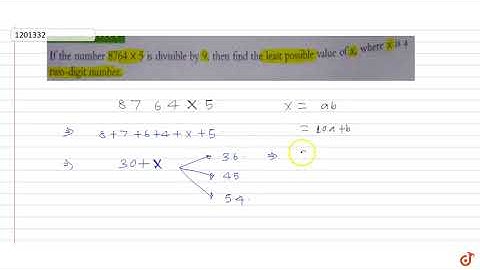 1201332
If the number 8764 X 5 is divisible by 9, then find the least possible value of x, where x is a
two-digit number.
8 7 6 4 X 5
x = ab
⇒ 8+7+6+4+x+5
= 10a+b
⇒ 30+x
36 ⇒
45
54